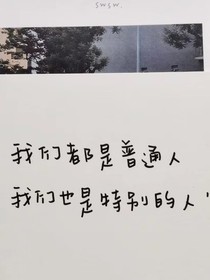 swsw.
我们都是普通人
我们也是特别的人"